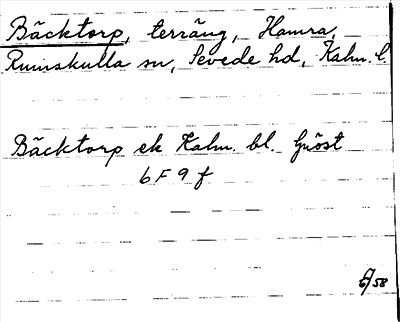 Bäcktorp, terräng, Hamra,
Rumskulla sn, Sevede hd, Kalm. l.
Bäcktorp ek Kalm. bl.
6 F 9 f
58